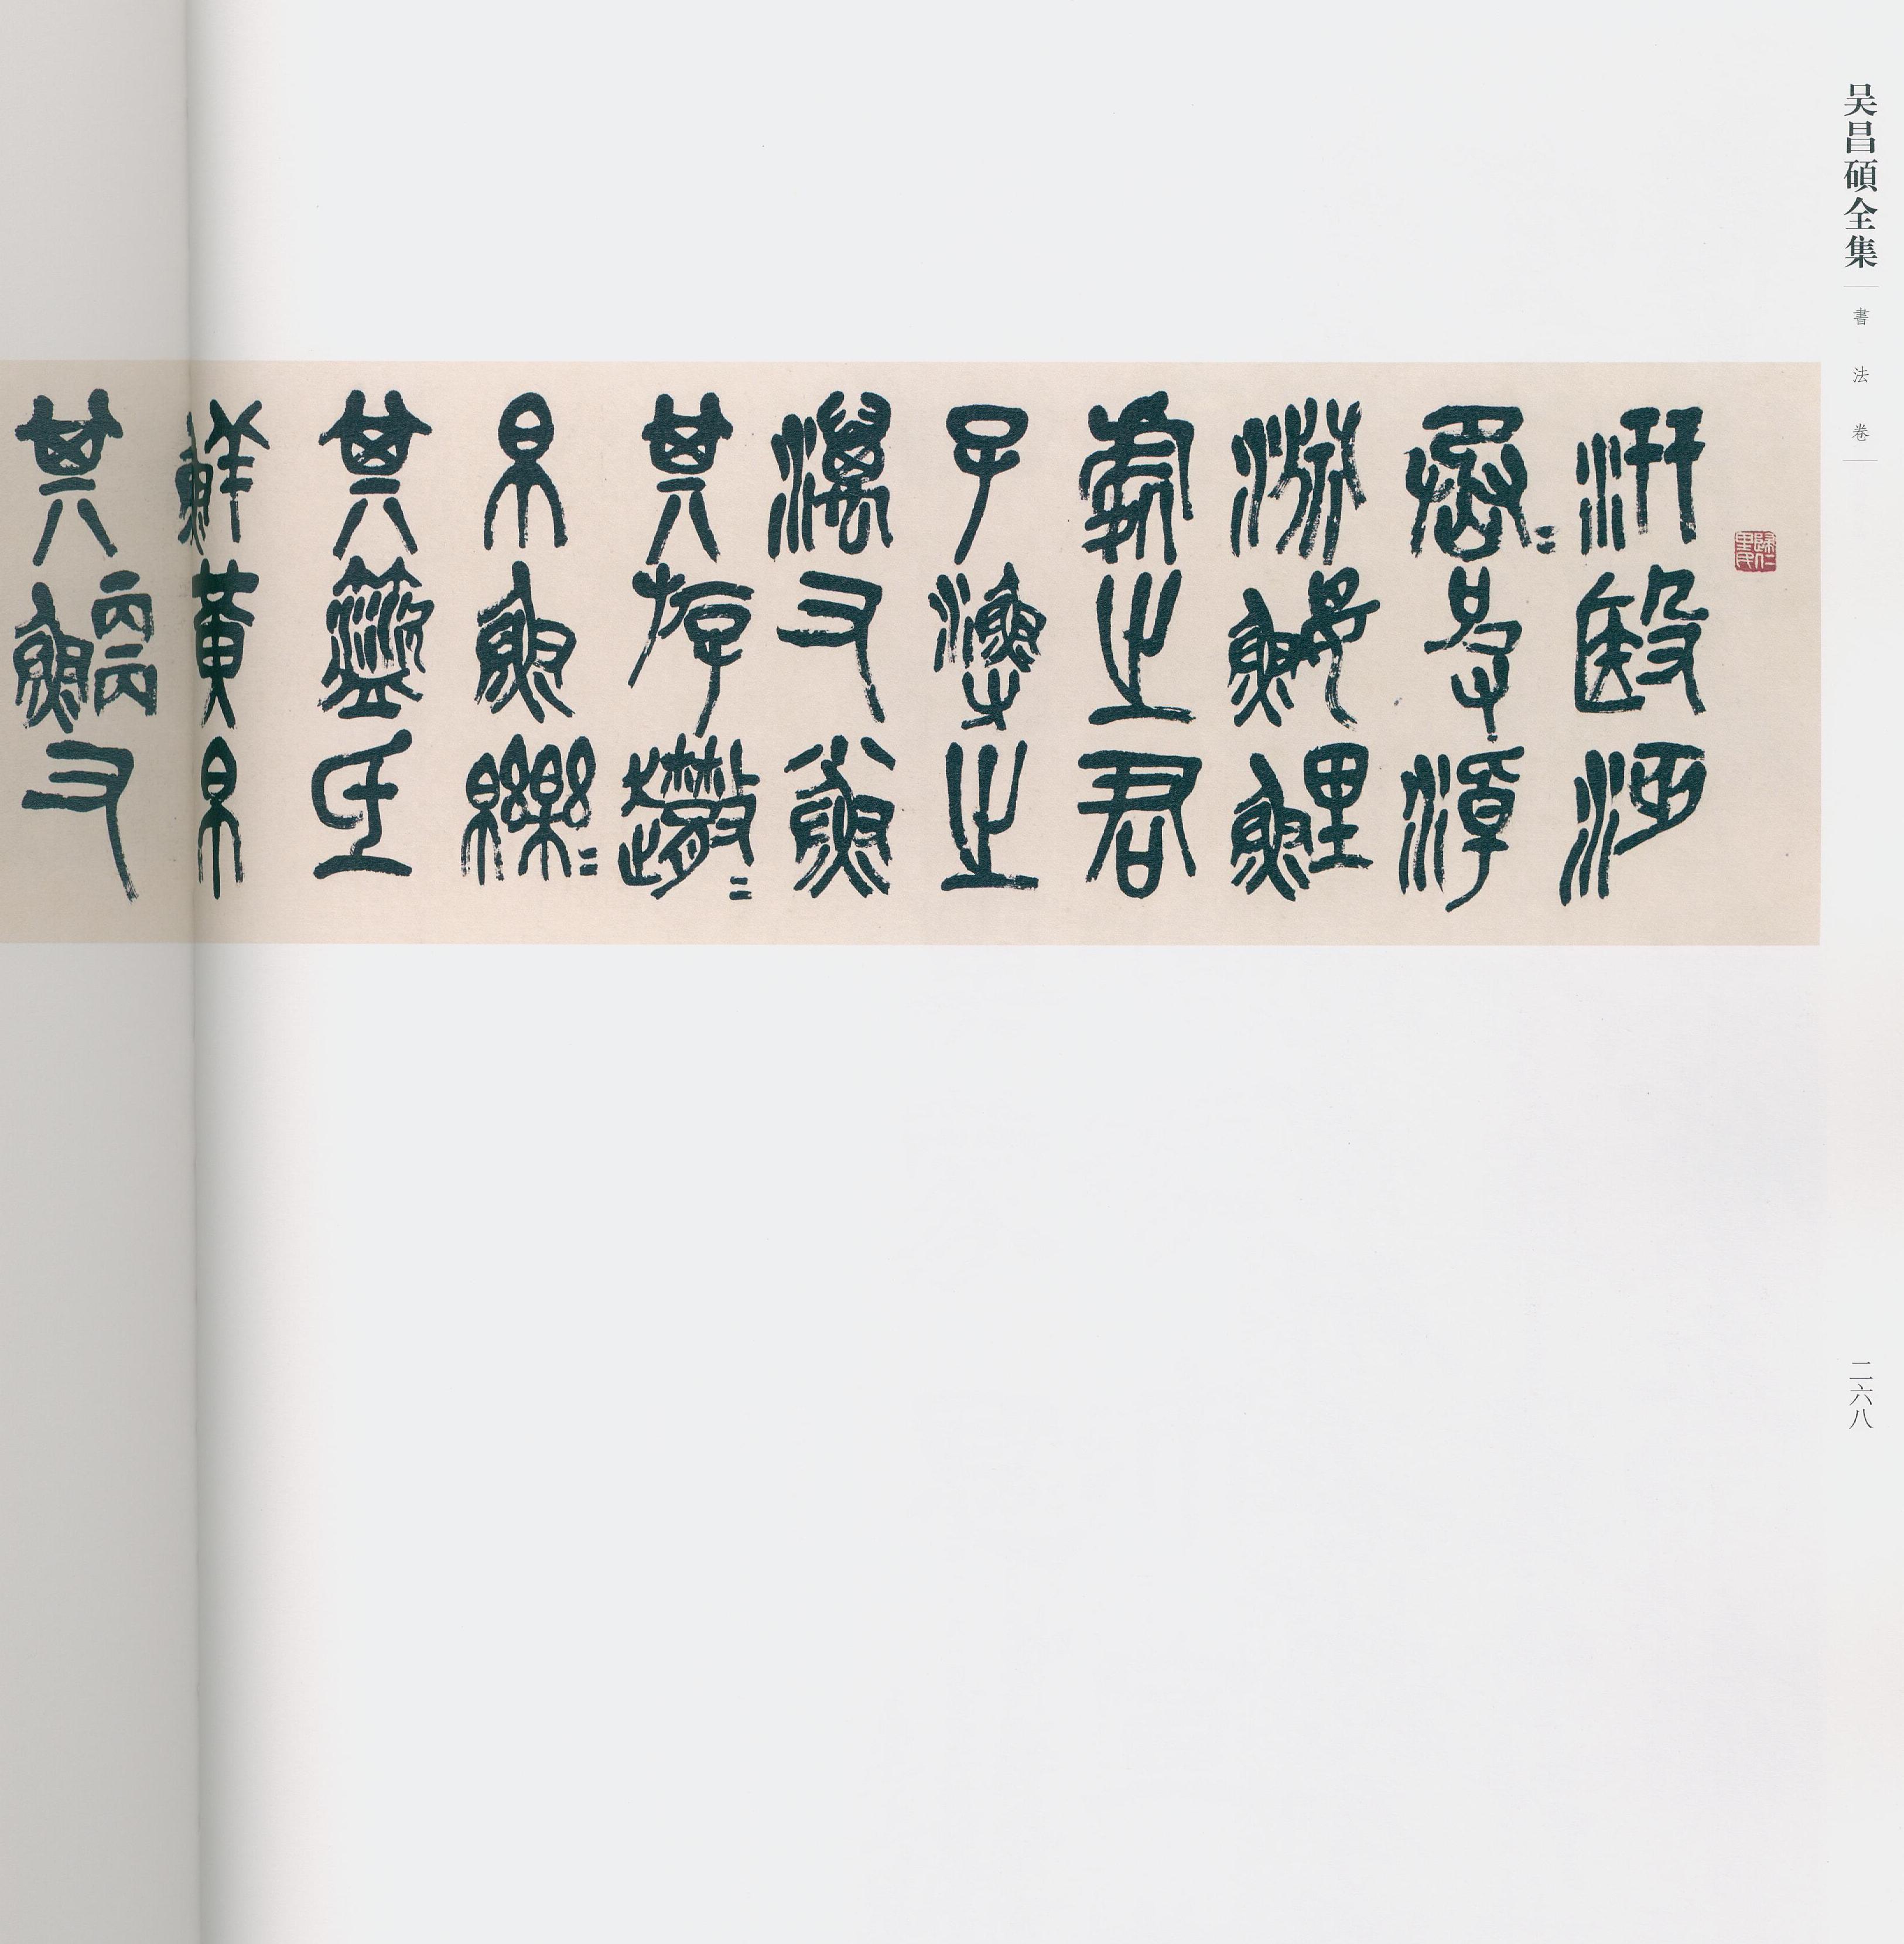 吴昌碩全集
書法卷
二六八
歸仁里民
汧殹沔
丞=皮淖
淵鰋鯉
處之君
子漁之
澫又小魚
其斿
帛魚皪=
其氐
鮮黃帛
其鯾又